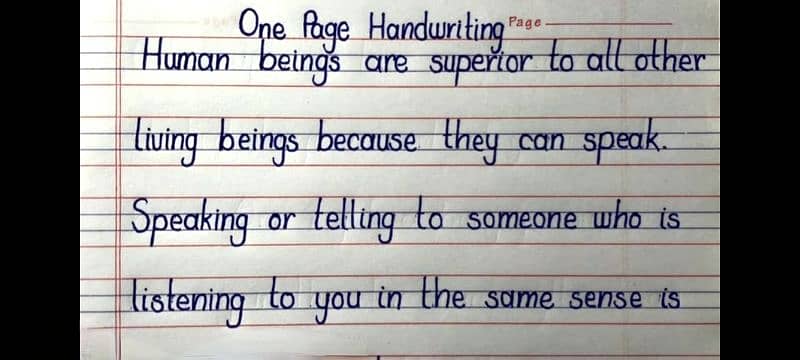 One Page Handwriting Page
Human beings are superior to all other
living beings because they can speak.
Speaking or telling to someone who is
listening to you in the same sense is